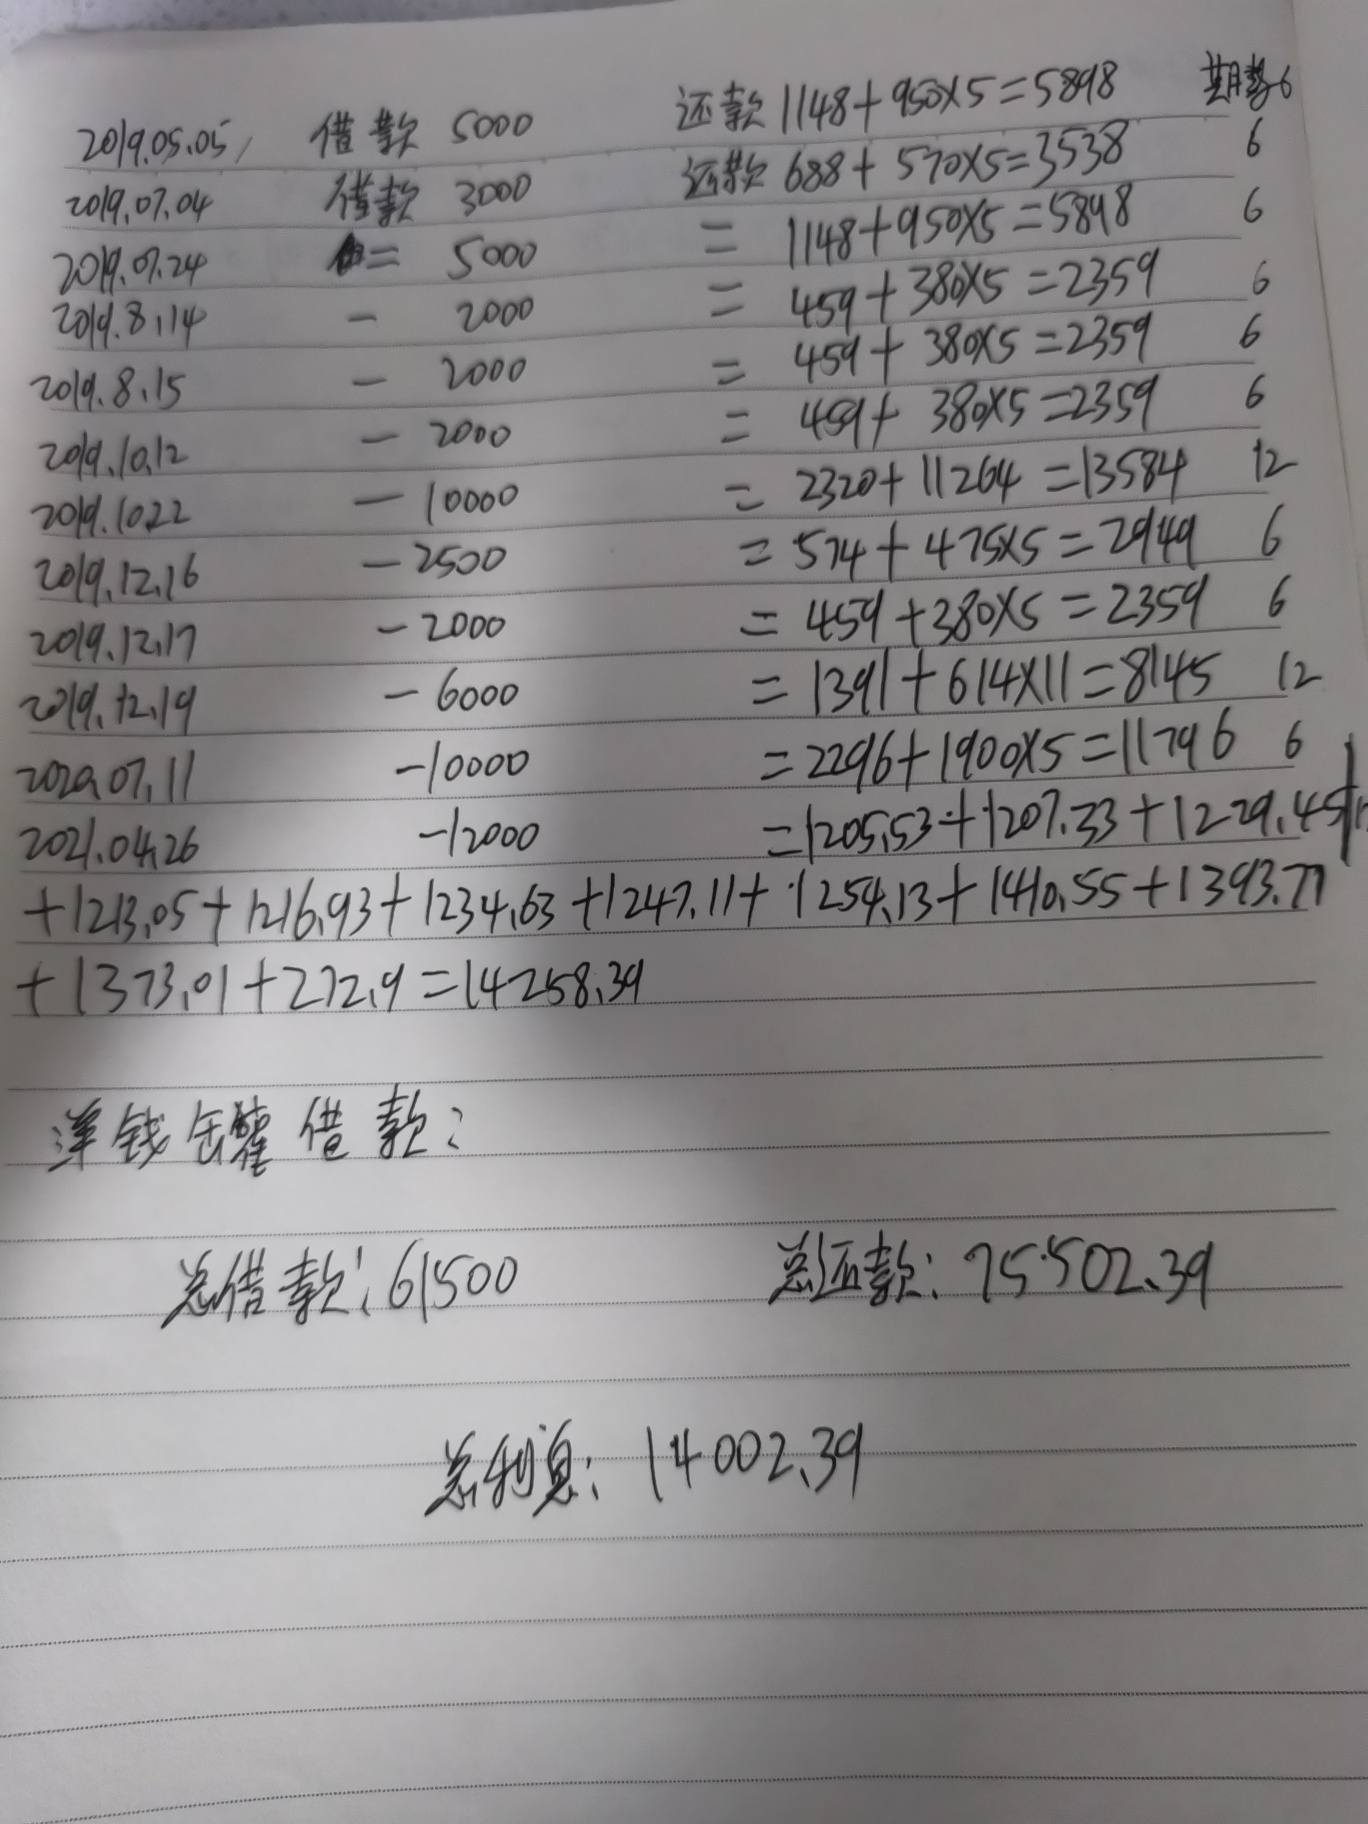 2019.05.05, 借款 5000 还款 1148+950×5=5898 期数6
2019.07.04 借款 3000 还款 688+570×5=3538 6
2019.07.24 = 5000 = 1148+950×5=5898 6
2019.8.14 - 2000 = 459+380×5=2359 6
2019.8.15 - 2000 = 459+380×5=2359 6
2019.10.12 - 2000 = 459+380×5=2359 6
2019.10.22 - 10000 = 2320+11264=13584 12
2019.12.16 - 2500 = 574+475×5=2949 6
2019.12.17 - 2000 = 459+380×5=2359 6
2019.12.19 - 6000 = 1391+614×11=8145 12
2020.07.11 - 10000 = 2296+1900×5=11796 6
2021.04.26 - 12000 = 1205.53+1207.33+1229.45
+1213.05+1216.93+1234.63+1247.11+1254.13+1410.55+1393.77
+1373.01+272.9=14258.39
洋钱罐借款:
总借款:61500 总还款:75502.39
总利息:14002.39